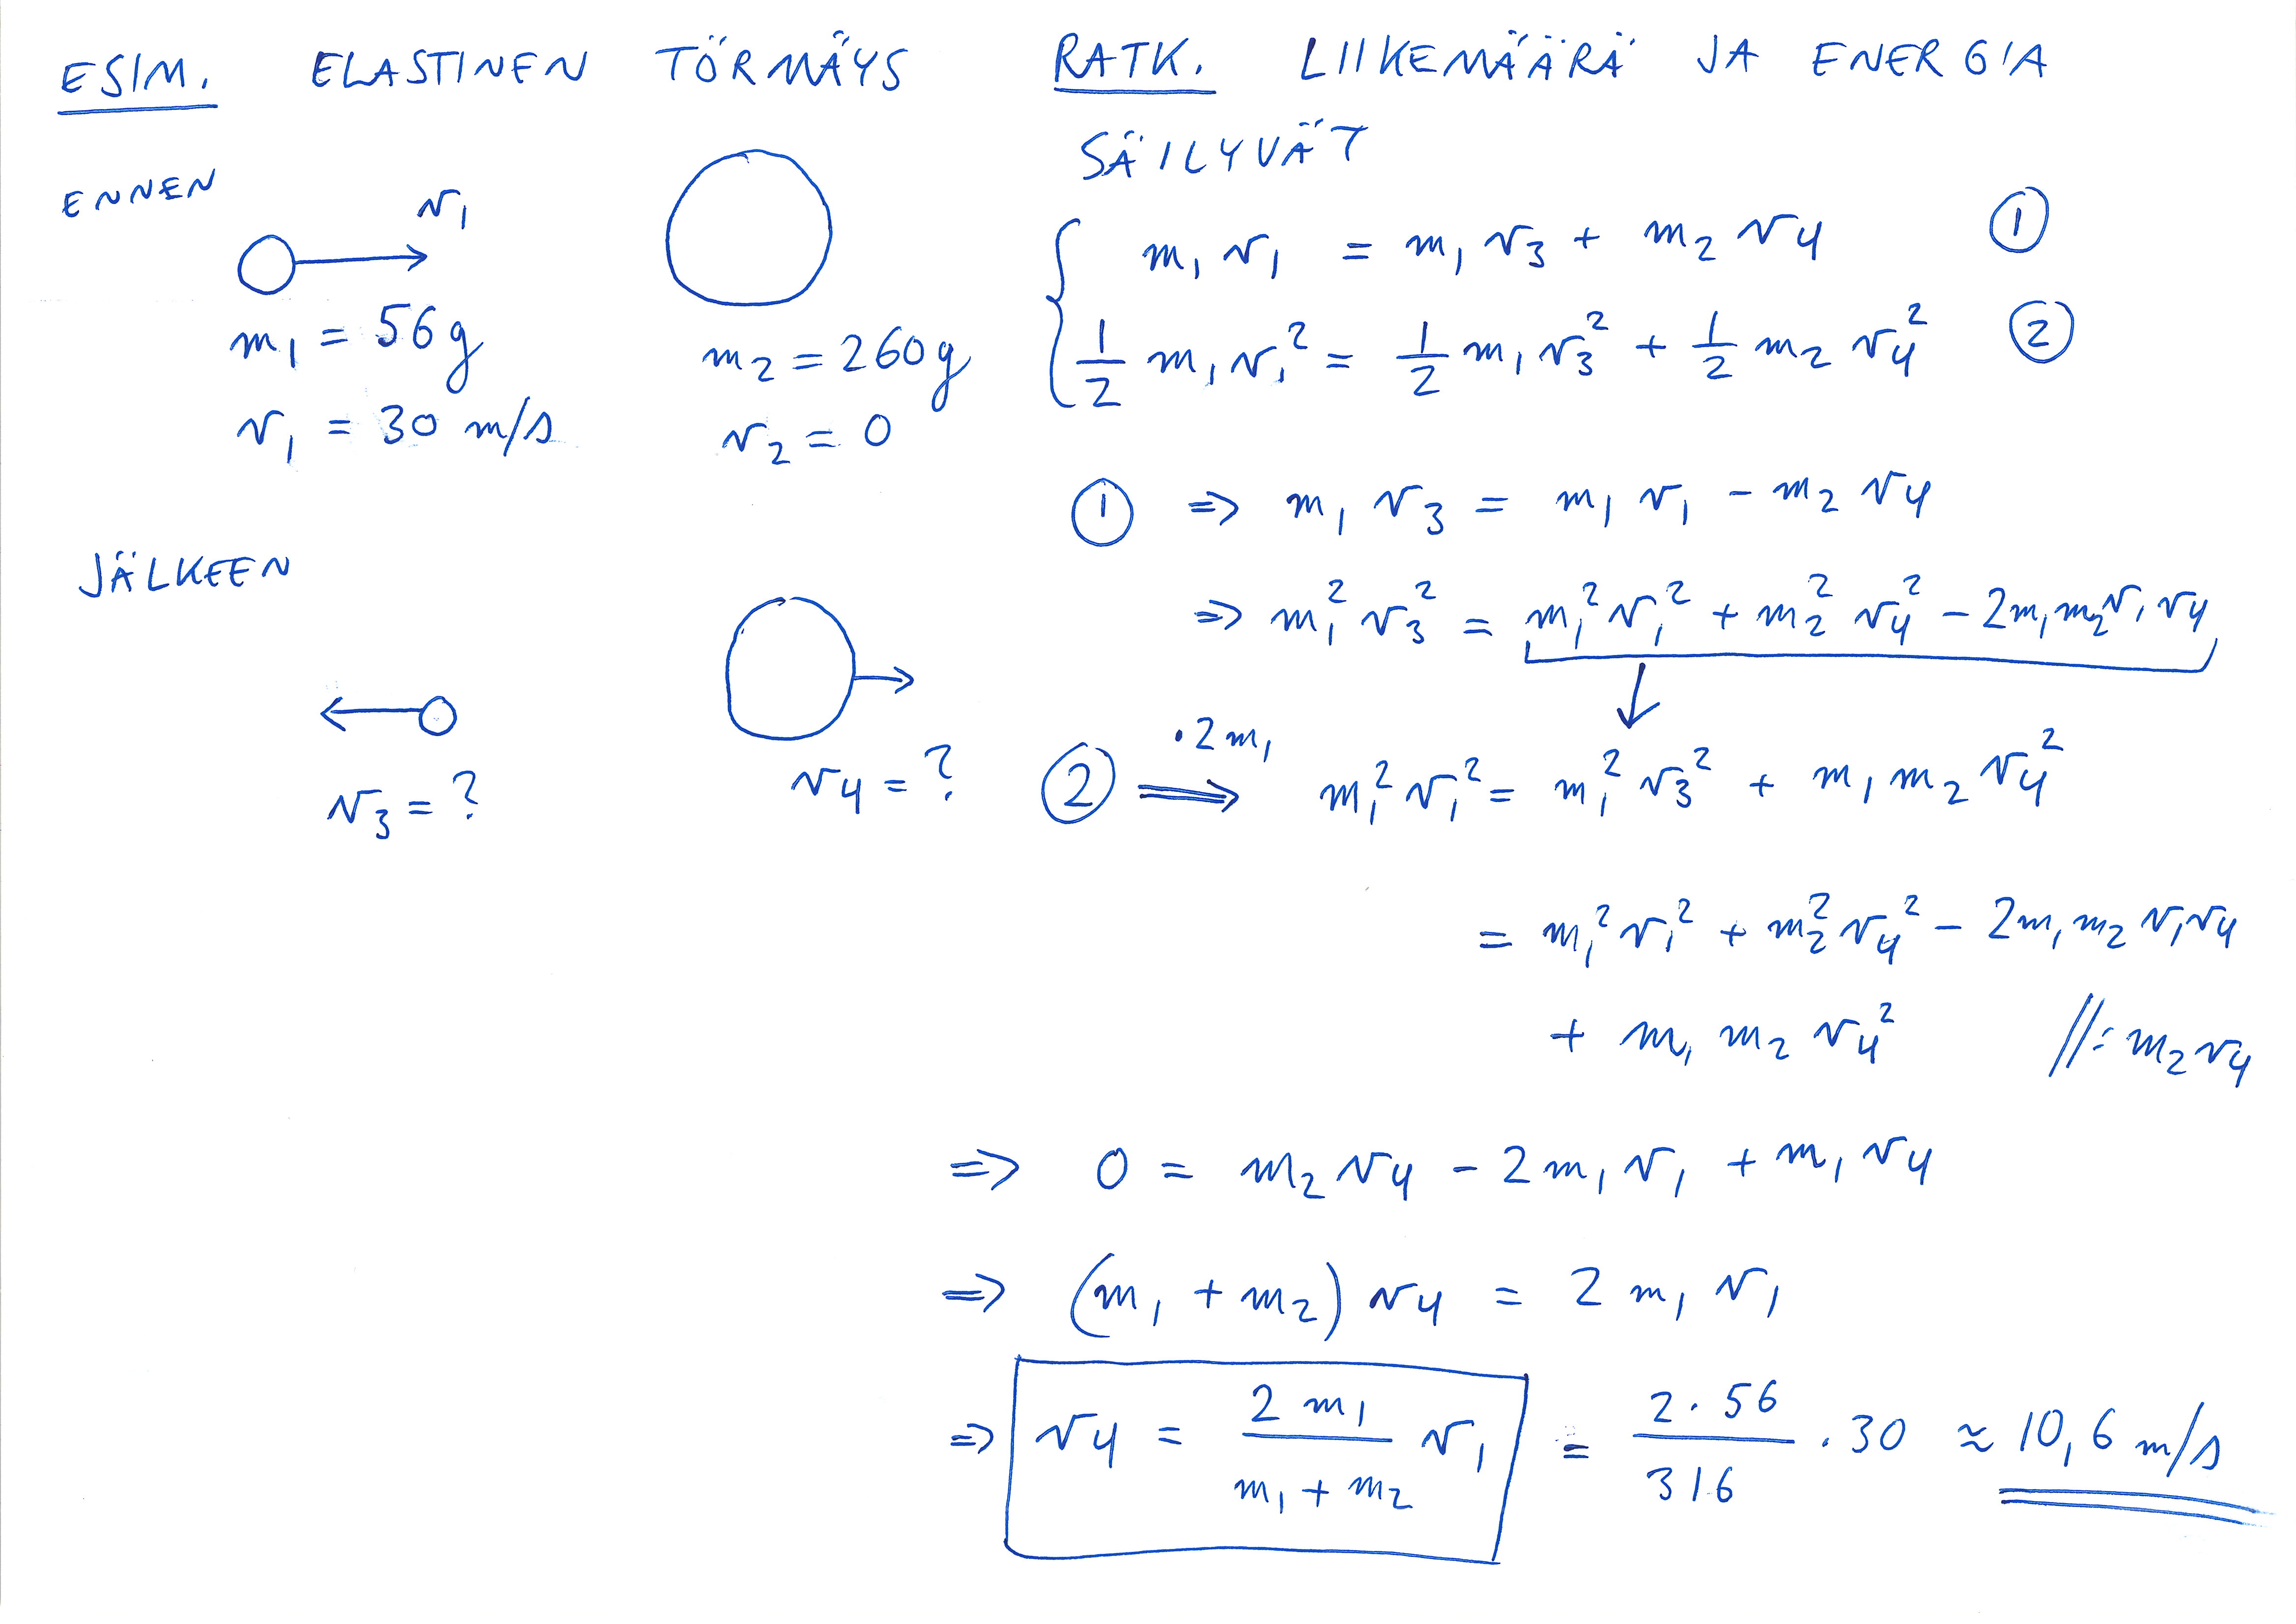 ESIM. ELASTINEN TÖRMÄYS
ENNEN
v₁
m₁ = 56 g
v₁ = 30 m/s
m₂ = 260 g
v₂ = 0
JÄLKEEN
v₃ = ?
v₄ = ?
RATK. LIIKEMÄÄRÄ JA ENERGIA
SÄILYVÄT
m₁ v₁ = m₁ v₃ + m₂ v₄ ①
1/2 m₁ v₁² = 1/2 m₁ v₃² + 1/2 m₂ v₄² ②
① ⇒ m₁ v₃ = m₁ v₁ - m₂ v₄
⇒ m₁² v₃² = m₁² v₁² + m₂² v₄² - 2m₁m₂v₁v₄
② ·2m₁ ⟹ m₁² v₁² = m₁² v₃² + m₁ m₂ v₄²
= m₁² v₁² + m₂² v₄² - 2m₁ m₂ v₁v₄
+ m₁ m₂ v₄² //: m₂v₄
⇒ 0 = m₂ v₄ - 2m₁ v₁ + m₁ v₄
⇒ (m₁ + m₂) v₄ = 2 m₁ v₁
⇒ v₄ = 2 m₁ / m₁ + m₂ v₁ = 2·56 / 316 · 30 ≈ 10,6 m/s